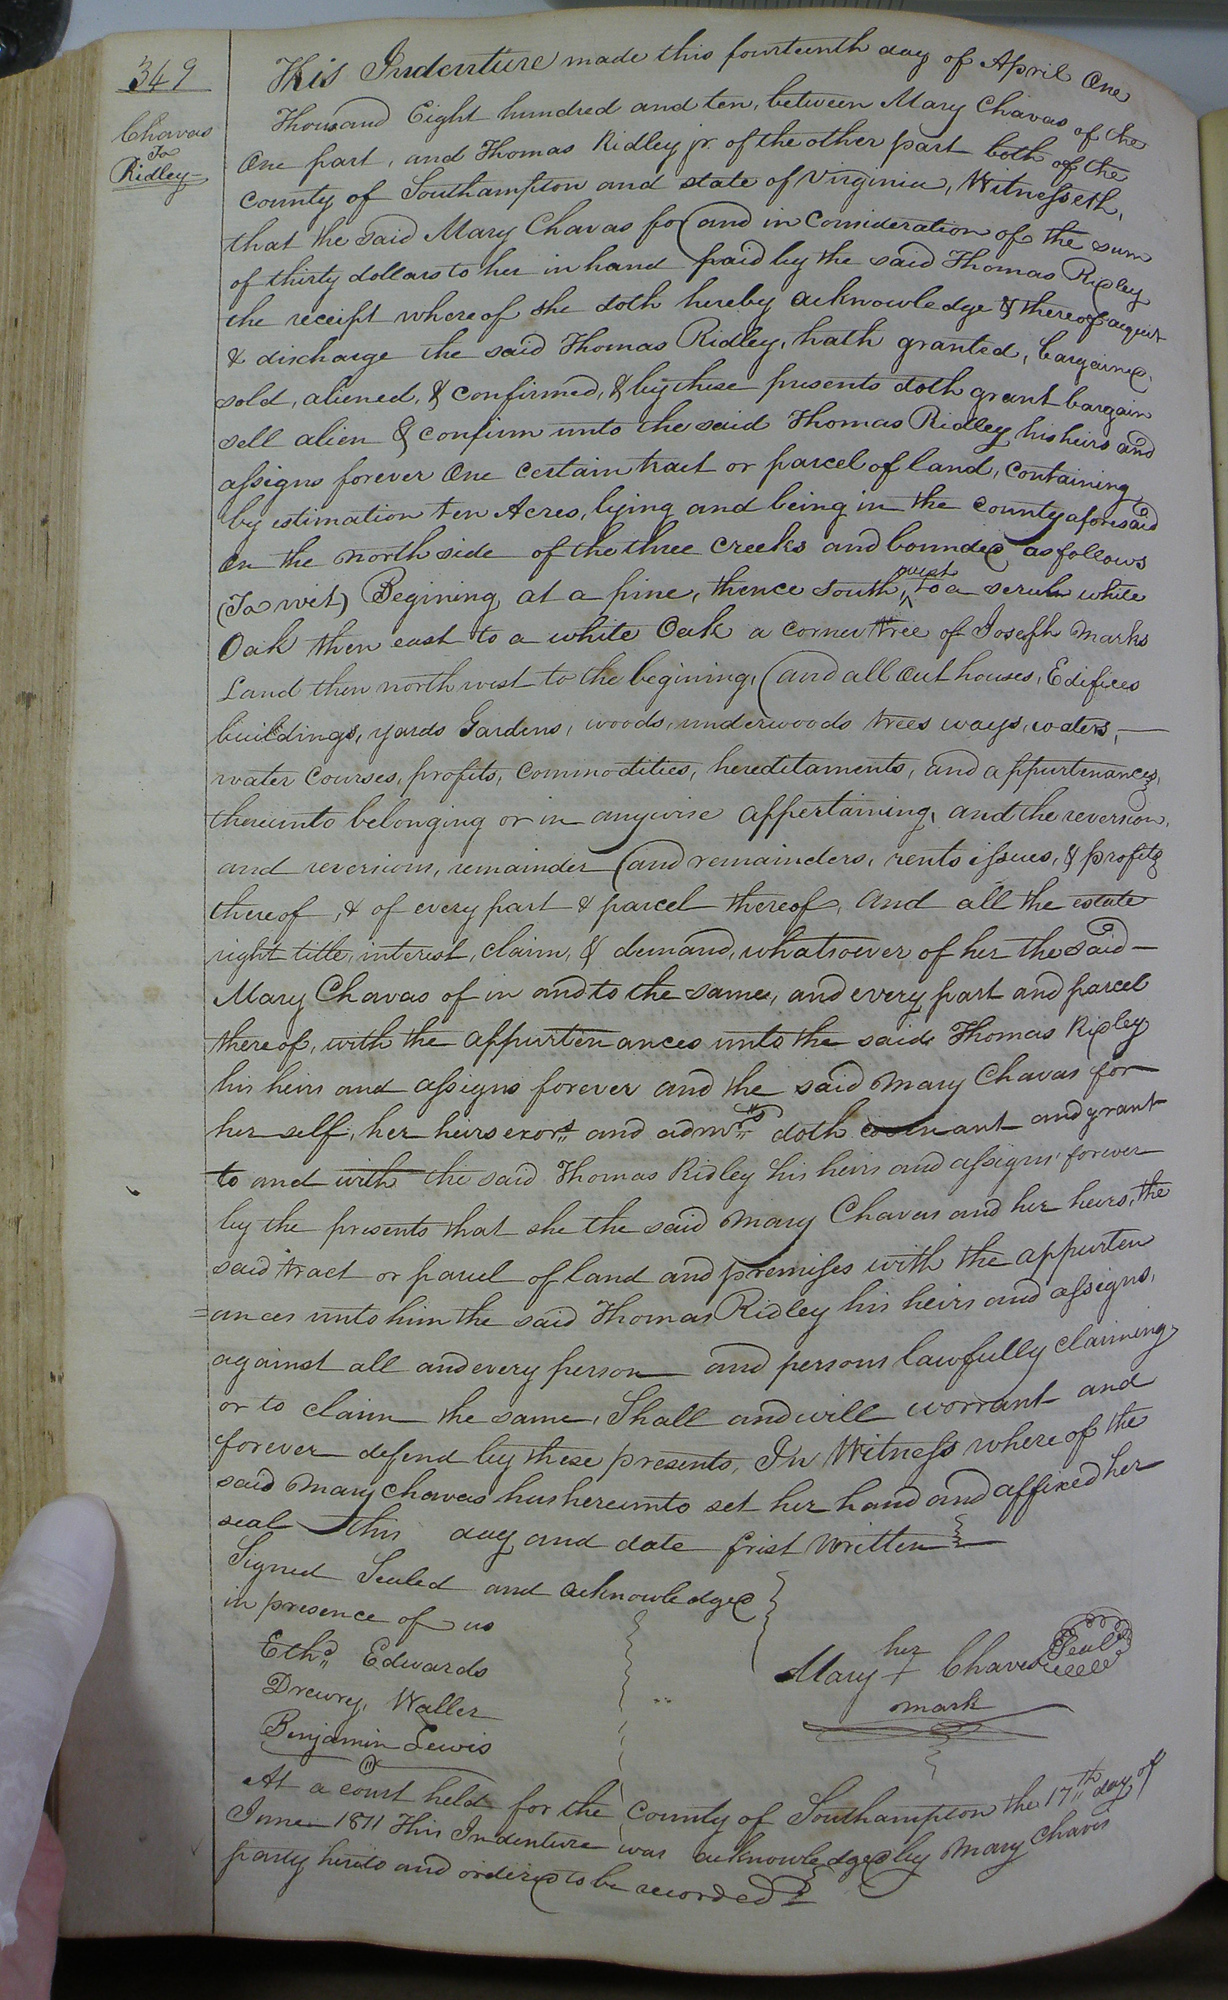 349
Chavas
To
Ridley
This Indenture made this fourteenth day of April One
Thousand Eight hundred and ten, between Mary Chavas of the
One part, and Thomas Ridley jr. of the other part both of the
County of Southampton and state of Virginia, Witnesseth,
that the said Mary Chavas for and in Consideration of the sum
of thirty dollars to her in hand paid by the said Thomas Ridley
the receipt whereof she doth hereby acknowledge & thereof acquit
& discharge the said Thomas Ridley, hath granted, bargained,
sold, aliened, & confirmed, & by these presents doth grant bargain
sell alien & confirm unto the said Thomas Ridley his heirs and
assigns forever One certain tract or parcel of land, containing
by estimation ten Acres, lying and being in the County aforesaid
on the north side of the three Creeks and bounded as follows
(To wit) Begining at a pine, thence South west to a scrub white
Oak then east to a white Oak a corner tree of Joseph Marks
Land then north west to the begining, and all out houses, Edifices
buildings, yards Gardens, woods, underwoods trees ways, waters,
water Courses, profits, Commodities, hereditaments, and appurtenances,
thereunto belonging or in anywise appertaining, and the reversion,
and reversions, remainder and remainders, rents issues, & profits
thereof, & of every part & parcel thereof, And all the estate
right title, interest, claim, & demand, whatsoever of her the said
Mary Chavas of in and to the same, and every part and parcel
thereof, with the appurtenances unto the said Thomas Ridley
his heirs and assigns forever and the said Mary Chavas for
her self, her heirs exors and admrs doth covenant and grant
to and with the said Thomas Ridley his heirs and assigns forever
by the presents that she the said Mary Chavas and her heirs, the
said tract or parcel of land and premises with the appurten
=ances unto him the said Thomas Ridley his heirs and assigns,
against all and every person and persons lawfully claiming,
or to claim the same, Shall and will worrant and
forever defend by these presents, In Witness where of the
said Mary Chavas has hereunto set her hand and affixed her
seal this day and date frist written
Signed Sealed and acknowledged
in presence of us
Ethd Edwards
Drewry Waller
Benjamin Lewis
her
Mary + Chaves Seal
mark
At a court held for the County of Southampton the 17th day of
June 1811 This Indenture was acknowledged by Mary Chavis
party hereto and ordered to be recorded